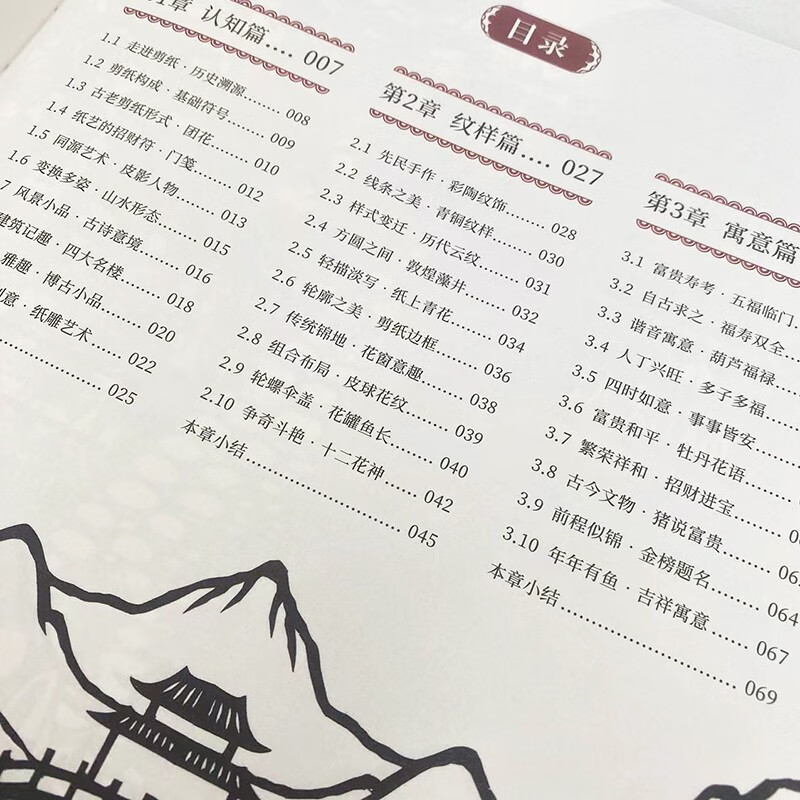 目录
1章 认知篇.... 007
1.1 走进剪纸·历史溯源........ 008
1.2 剪纸构成·基础符号........ 009
1.3 古老剪纸形式·团花........ 010
1.4 纸艺的招财符·门笺........ 012
1.5 同源艺术·皮影人物........ 013
1.6 变换多姿·山水形态........ 015
7 风景小品·古诗意境........ 016
建筑记趣·四大名楼........ 018
雅趣·博古小品........ 020
意·纸雕艺术...... 022
025
第2章 纹样篇.... 027
2.1 先民手作·彩陶纹饰........ 028
2.2 线条之美·青铜纹样........ 030
2.3 样式变迁·历代云纹........ 031
2.4 方圆之间·敦煌藻井........ 032
2.5 轻描淡写·纸上青花........ 034
2.6 轮廓之美·剪纸边框........ 036
2.7 传统锦地·花窗意趣........ 038
2.8 组合布局·皮球花纹........ 039
2.9 轮螺伞盖·花罐鱼长........ 040
2.10 争奇斗艳·十二花神...... 042
本章小结........................ 045
第3章 寓意篇
3.1 富贵寿考·五福临门
3.2 自古求之·福寿双全
3.3 谐音寓意·葫芦福禄
3.4 人丁兴旺·多子多福
3.5 四时如意·事事皆安
3.6 富贵和平·牡丹花语
3.7 繁荣祥和·招财进宝
3.8 古今文物·猪说富贵
3.9 前程似锦·金榜题名........ 064
3.10 年年有鱼·吉祥寓意...... 067
本章小结........................ 069